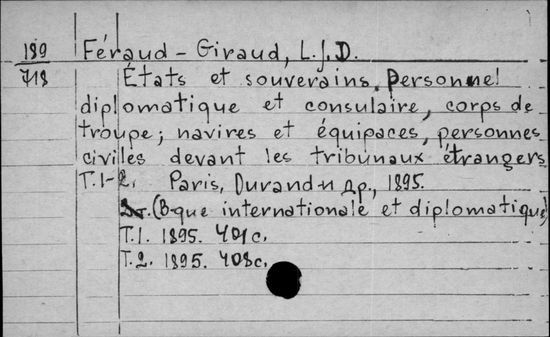 189
718
Féraud - Giraud, L.J.D.
États et souverains. Personnel
diplomatique et consulaire, corps de
troupe; navires et équipaces, personnes
civiles devant les tribunaux étrangers
T.1-2. Paris, Durand и др., 1895.
(B-que internationale et diplomatique)
T.1. 1895. 401 c.
T.2. 1895. 408 c.